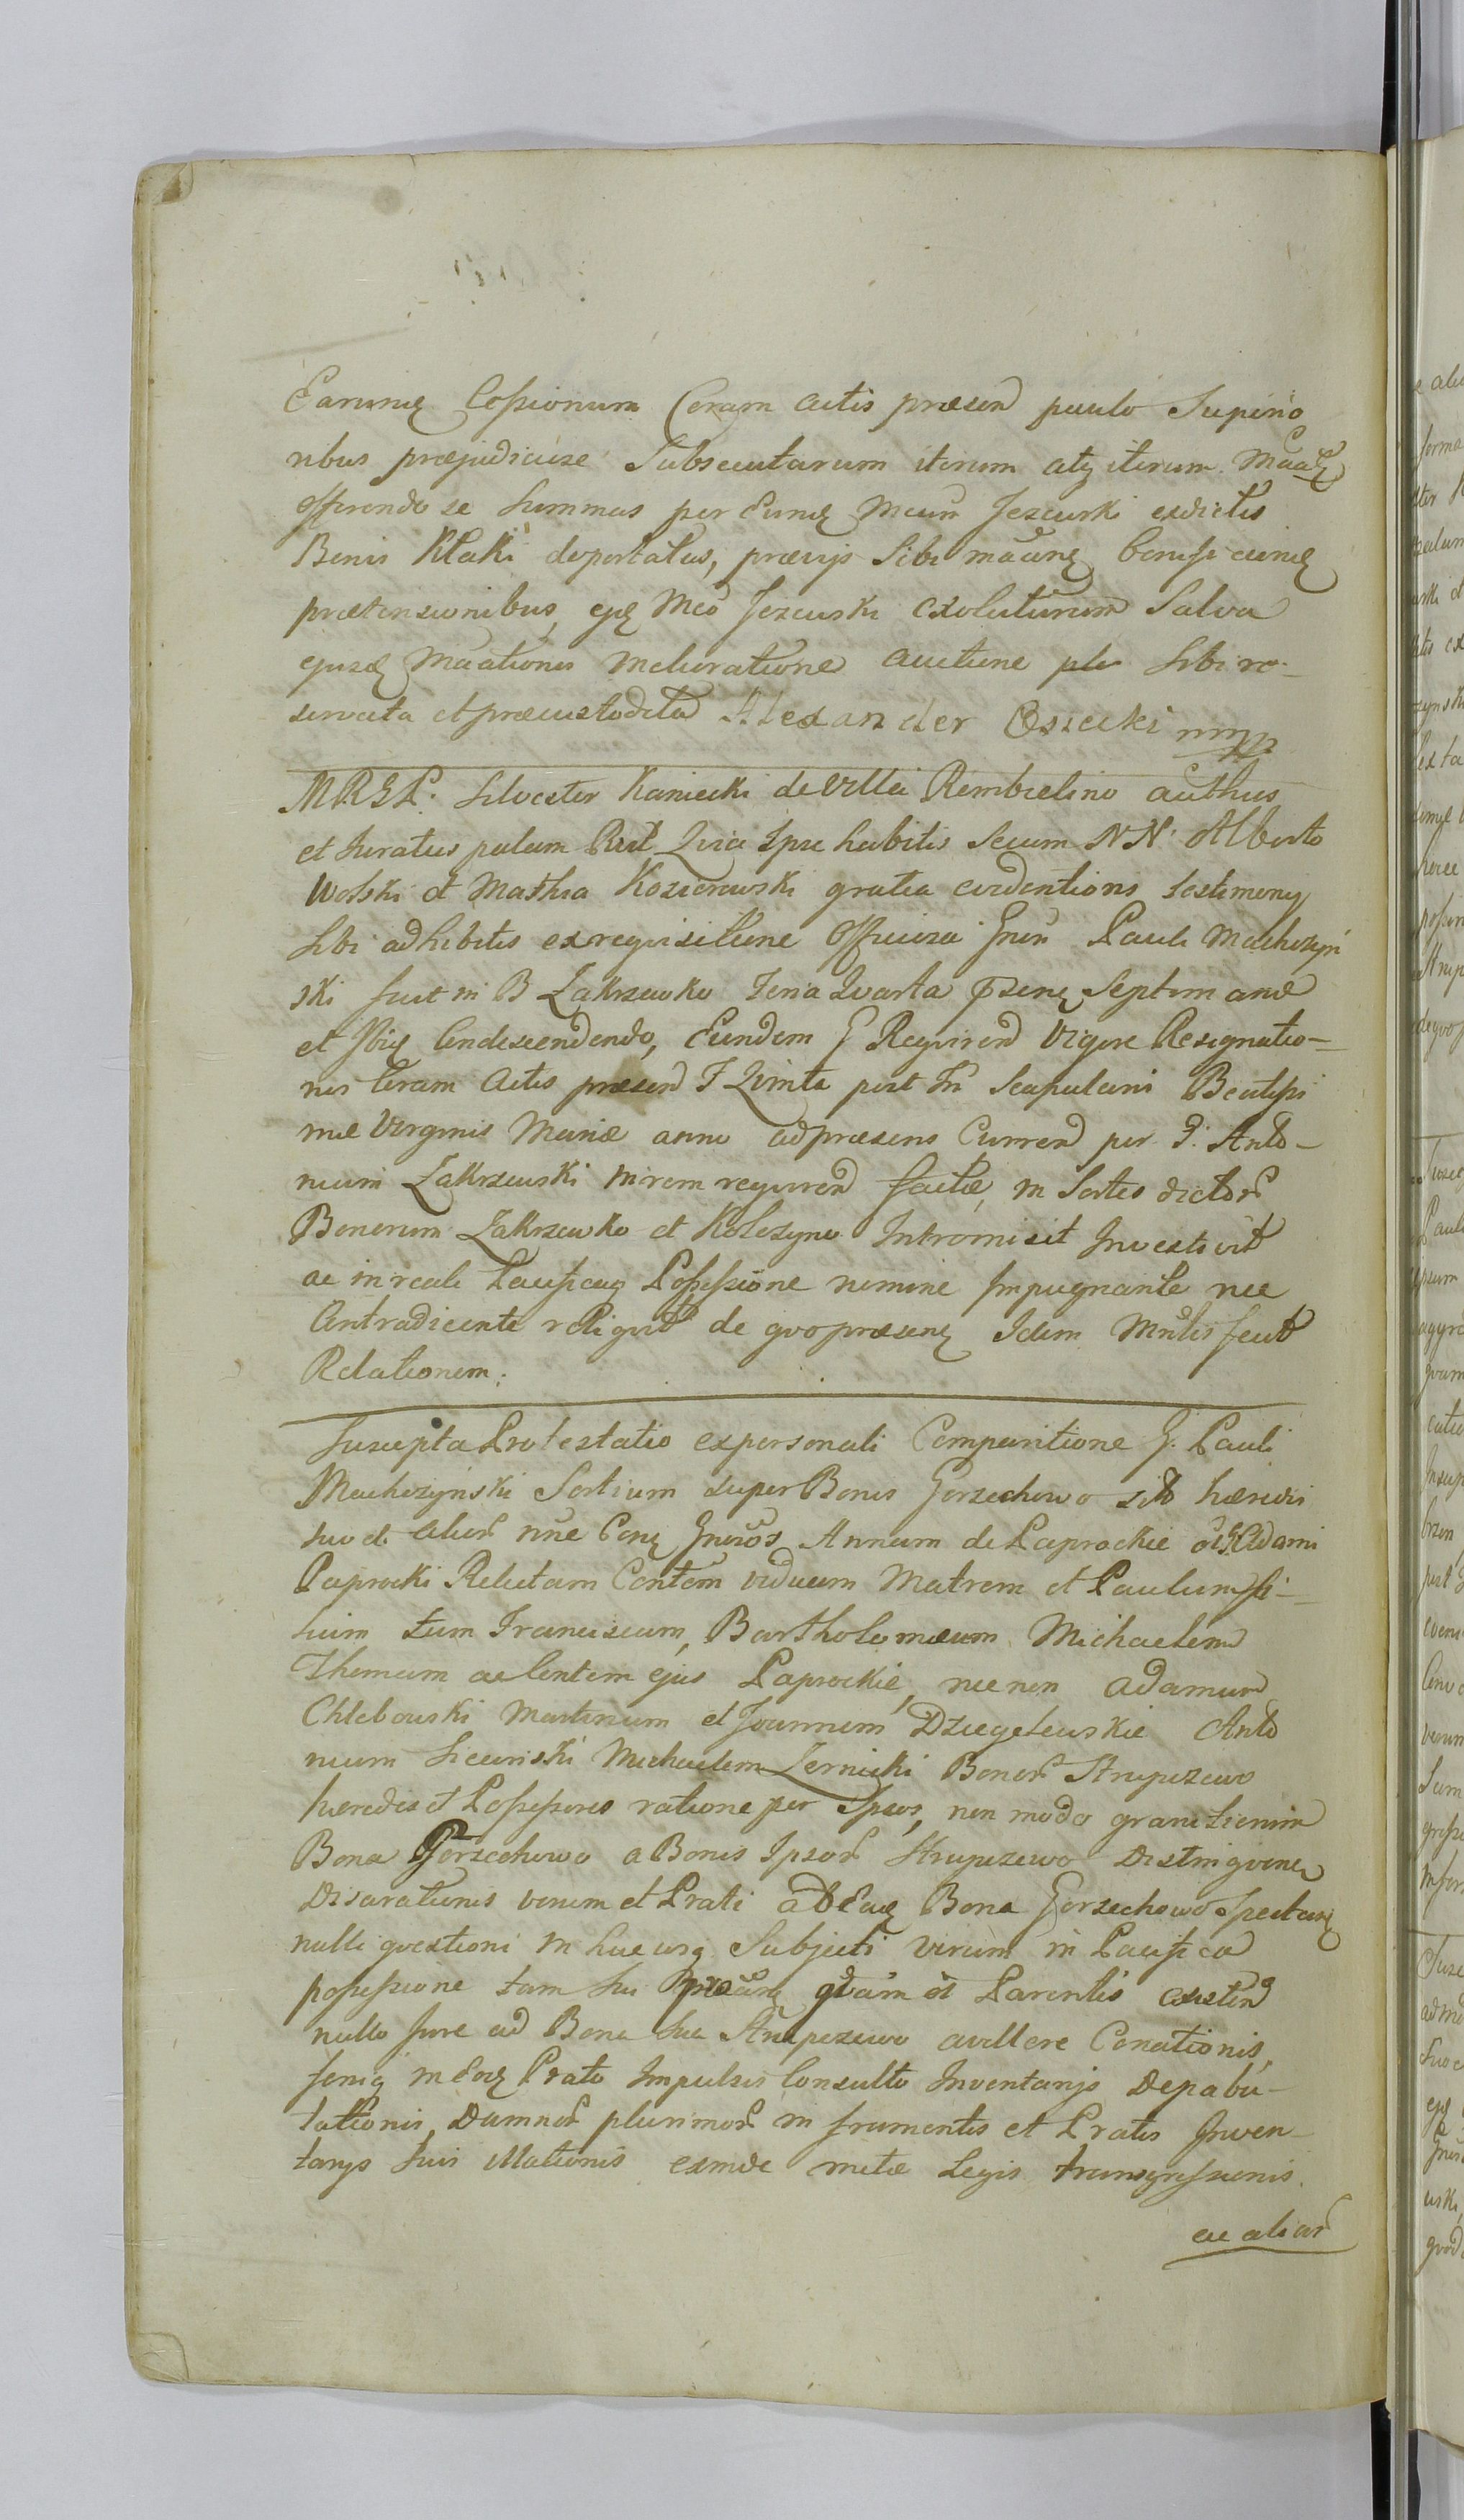 Earunq Cessionum Coram actis præsend paulo Superio
ribus præjudiciose Subsecutarum iterum atq iterum
offerendo se Summas per Eunq Mcum Jezewski exdictis
Bonis Kłaki deportatas, prævijs Sibi
prætensionibus, ejq Mco Jezewski exoluturum Salva
ejusq Maationis melioratione auctione plo Sibi re-
servata et præcustodita Alexander Ossecki mpp
MRGL. Silvester Kaniecki de Villa Rembielino authus
et Juratus palam Rect Quia Ipse habitis Secum NN Alberto
Wolski et Mathia Kozierowski gratia evidentioris testimonij
Sibi adhibitis ex requisitione Officiosa Gnsi Pauli Machczyń
ski fuit in B Zakrzewko Feria Quarta Septimanæ
et Ibiq Condescendendo, Eundem G Requirend Vigore Resignatio-
nis Coram Actis præsend F Quinta post Fm Scapularis Beatissi
mæ Virginis Mariæ anno adpræsens Currend per G. Anto-
nium Zakrzewski in rem requirend factæ, in Sortes dictor
Bonorum Zakrzewko et Kolczyno Intromisit Investivit
ac in reali Pacificaq Possessione nemine Impugnante nec
Contradicente reliquit de quo præsenq Idem Mnlis fecit
Relationem.
Suscepta Protestatio expersonali Comparitione G. Pauli
Machczyński Sortium super Bonis Gorzechowo sit hæredis
suo et alior nne Conq Gnsos Annam de Paprockie Adami
Paprocki Relictam Contem viduam Matrem et Paulum fi-
lium tum Franciscum, Bartholomæum Michaelem
Thomam ac Contem ejus Paprockie, nec non Adamum
Chlebowski Martinum et Joannem Dziegelewskie Anto
nium Sicański Michaelem Zernicki Bonor Strupczewo
hæredes et Possessores ratione per Ipsos, non modo granitierum
Bona Gorzechowo a Bonis Ipsor Strupczewo Distingvenq
Disarationis verum et Prati ad Eaq Bona Gorzechowo Spectanq
nulli qvestioni in hucusq Subjecti verum in Pacifica
possessione tam Sui qvam et Parentis existend
nullo Jure ad Bona Sua Strupczewo avellere Conationis,
feniq in Eoq Prato Impulsis Consulto Inventarijs Depabu-
lationis, Damnor plurimor in frumentis et Pratis Inven-
tarijs Suis illationis exinde metæ Legis transgressionis.
ac aliar